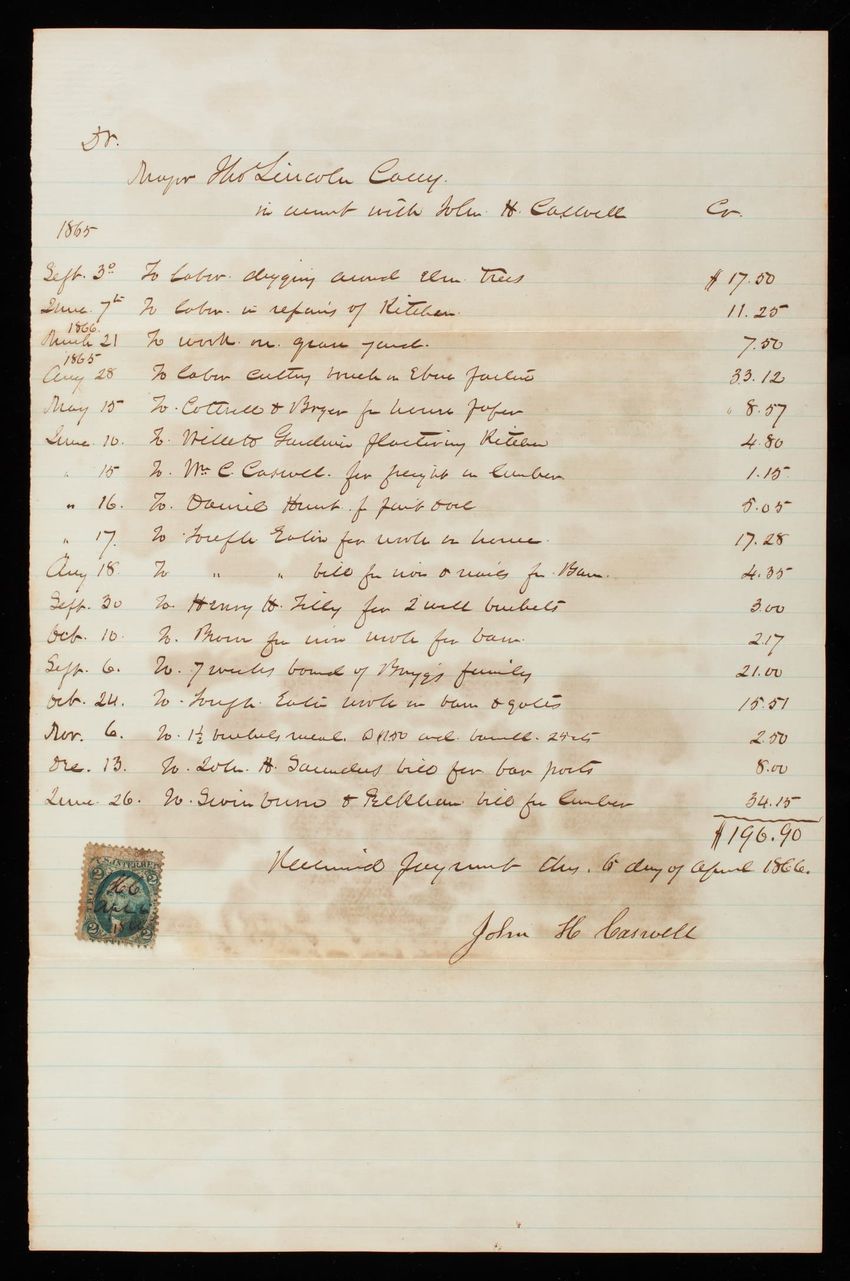 Dr.
Major Tho Lincoln Casey.
in account with John H. Caswell Cr.
1865
Sept. 30 To labor digging around Elm trees $17.50
June 7th To labor in repairs of Kitchen. 11.25
1866.
March 21 To work on grave yard. 7.50
1865
Aug 28 To labor cutting brush in Eben 33.12
May 15 To Cottrell & Bryer for house paper 8.57
June. 10. To Willett Gardner plastering Kitchen 4.80
" 15 To. Wm C. Caswell. for freight on lumber 1.15
" 16. To. Daniel Hunt for paint & oil 5.05
" 17. To Joseph Eaton for work on house 17.28
Aug 18 To " " bill for iron & nails for Barn. 4.35
Sept. 30 To Henry H. Tilly for 2 well buckets 3.00
Oct. 10. To. Brown for iron work for barn. 2.17
Sept. 6. To. 7 weeks board of Briggs family 21.00
Oct. 24. To Joseph Eaton work on barn & gates 15.51
Nov. 6. To. 1½ bushels meal. @ $1.50 and barrell. 25 cts 2.50
Dec. 13. To. John. H. Saunders bill for bar posts 8.00
June 26. To. Swinburne & Peckham bill for lumber 34.15
$196.90
Received payment this. 6 day of April 1866.
John H Caswell
U.S. INTER. REV.
2 2
H C
Apl 6
186
2 2